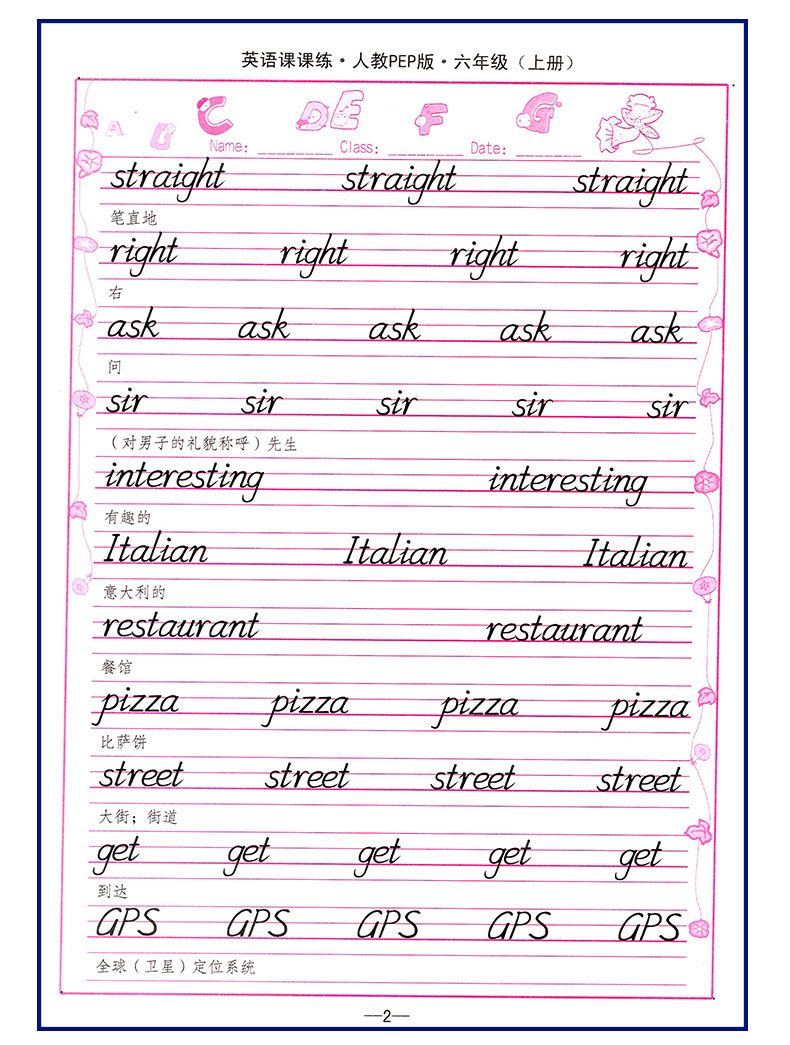 英语课课练·人教PEP版·六年级（上册）
A B C D E F G
Name: ________ Class: ________ Date: ________
straight straight straight
笔直地
right right right right
右
ask ask ask ask ask
问
sir sir sir sir sir
（对男子的礼貌称呼）先生
interesting interesting
有趣的
Italian Italian Italian
意大利的
restaurant restaurant
餐馆
pizza pizza pizza pizza
比萨饼
street street street street
大街；街道
get get get get get
到达
GPS GPS GPS GPS GPS
全球（卫星）定位系统
—2—